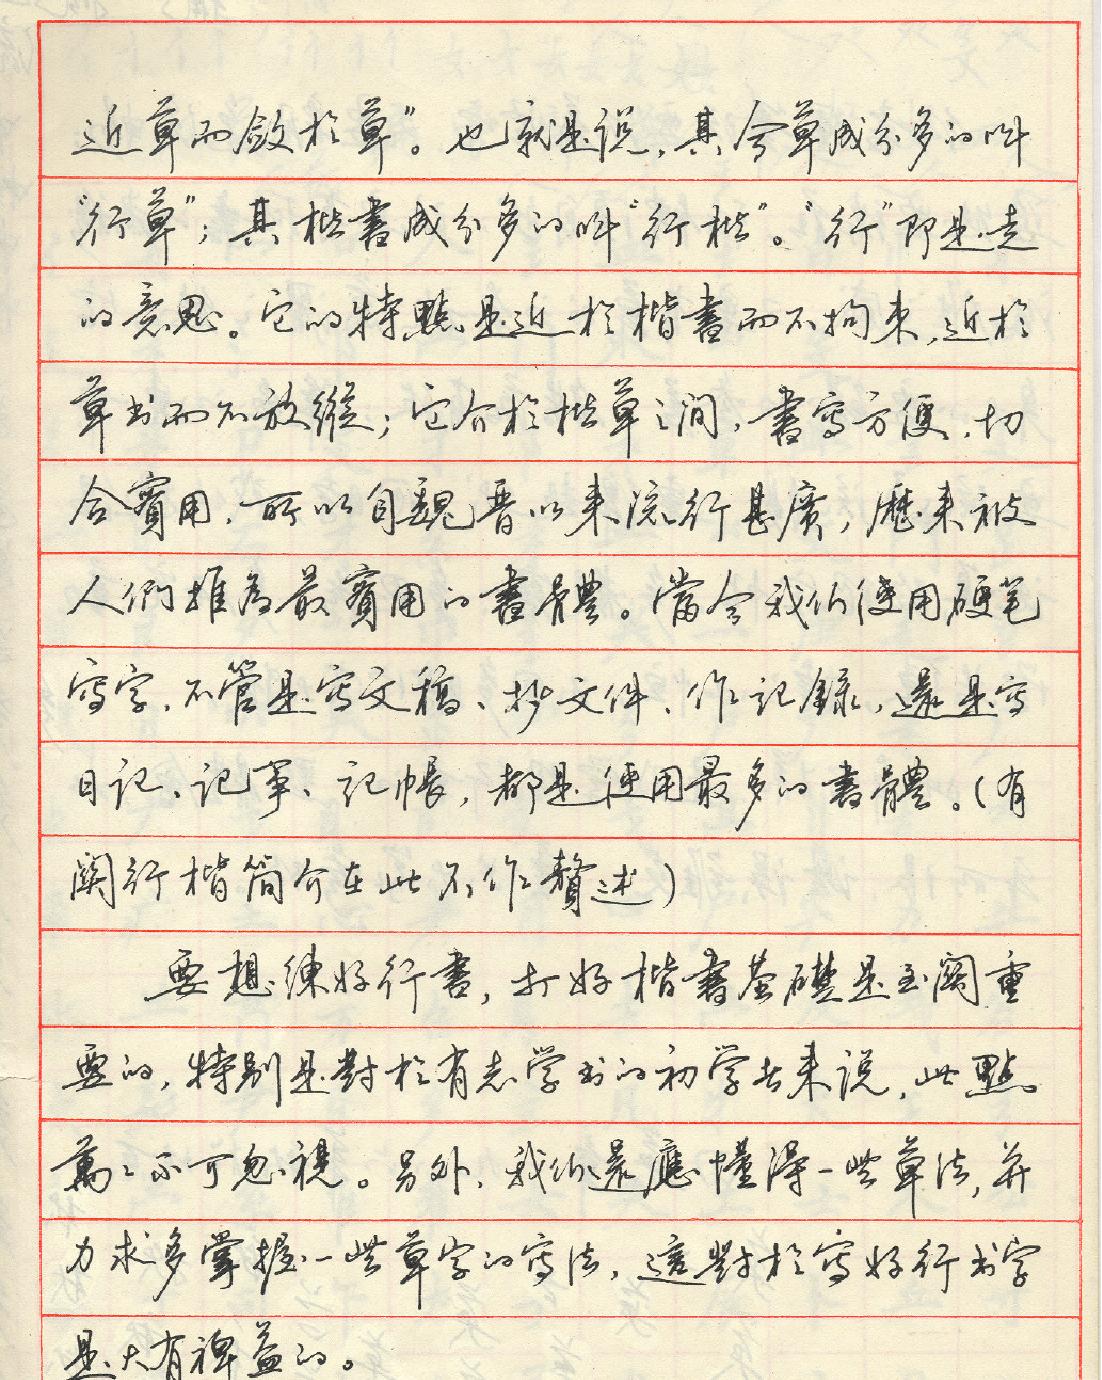 近草而斂於草”。也就是説，其含草成分多的叫
“行草”；其楷書成分多的叫“行楷”。“行”即是走
的意思。它的特點是近於楷書而不拘束，近於
草书而不放縱；它介於楷草之間，書寫方便，切
合實用，所以自魏晋以来流行甚廣，歷来被
人們推為最實用的書體。當今我们使用硬笔
寫字，不管是寫文稿、抄文件、作記録，還是寫
日記、記事、記帳，都是使用最多的書體。（有
関行楷簡介在此不作贅述）
要想練好行書，打好楷書基礎是至関重
要的，特别是對於有志学书的初学者来说，此點
萬々不可忽視。另外，我们還應懂得一些草法，并
力求多掌握一些草字的寫法，這對於寫好行书字
是大有裨益的。